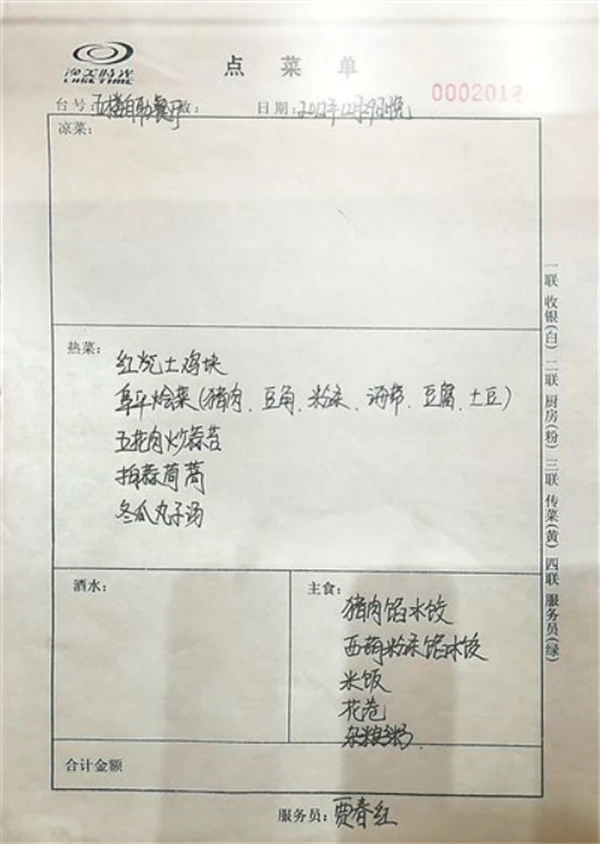 渔美时光
LIKE TIME
点菜单
0002012
台号：五楼自助餐厅 数：
日期：2012年12月29日晚
凉菜：
热菜：
红烧土鸡块
阜平烩菜（猪肉、豆角、粉条、海带、豆腐、土豆）
五花肉炒蒜苔
拌蒜茼蒿
冬瓜丸子汤
酒水：
主食：
猪肉馅水饺
西葫粉条馅水饺
米饭
花卷
杂粮粥
合计金额
服务员：贾春红
一联 收银(白) 二联 厨房(粉) 三联 传菜(黄) 四联 服务员(绿)